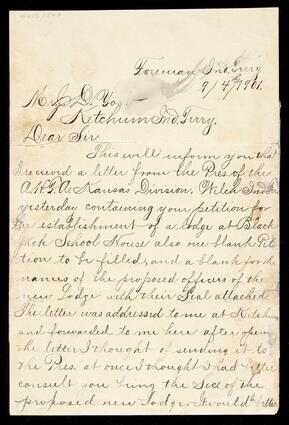 Foreman Ind. Terry.
9/4th/1901.
Mr J. D. Yo
Ketchum Ind. Terry.
Dear Sir
This will inform you that
I receivd a letter from the Pres. of the
A.H.T.A. Kansas Division,
yesterday containing your petition for
the establishment of a lodge at Black
Jack School House also one blank Peti
tion to be filled, and a blank for the
names of the proposed offices of the
new Lodge with their Seal attached.
The letter was addressed to me at Ketchum
and forwarded to me here after opening
the letter I thought of sending it to
the Pres. at once I thought I had better
consult you being the Sec of the
proposed new Lodge. I would